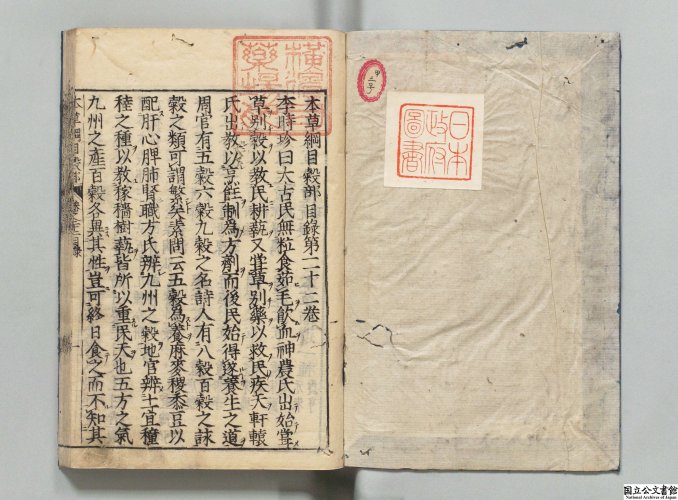 日本
政府
圖書
本草綱目穀部目錄第二十二卷
李時珍曰太古民無粒食茹毛飲血神農氏出始嘗
草別穀以教民耕蓺又嘗草別藥以救民疾夭軒轅
氏出教以烹飪制為方劑而後民始得遂養生之道
周官有五穀六穀九穀之名詩人有八穀百穀之詠
穀之類可謂繁矣素問云五穀為養麻麥稷黍豆以
配肝心脾肺腎職方氏辨九州之穀地官辨土宜穜
稑之種以教稼穡樹蓺皆所以重民天也五方之氣
九州之產百穀各異其性豈可終日食之而不知其
本草綱目
国立公文書館
National Archives of Japan